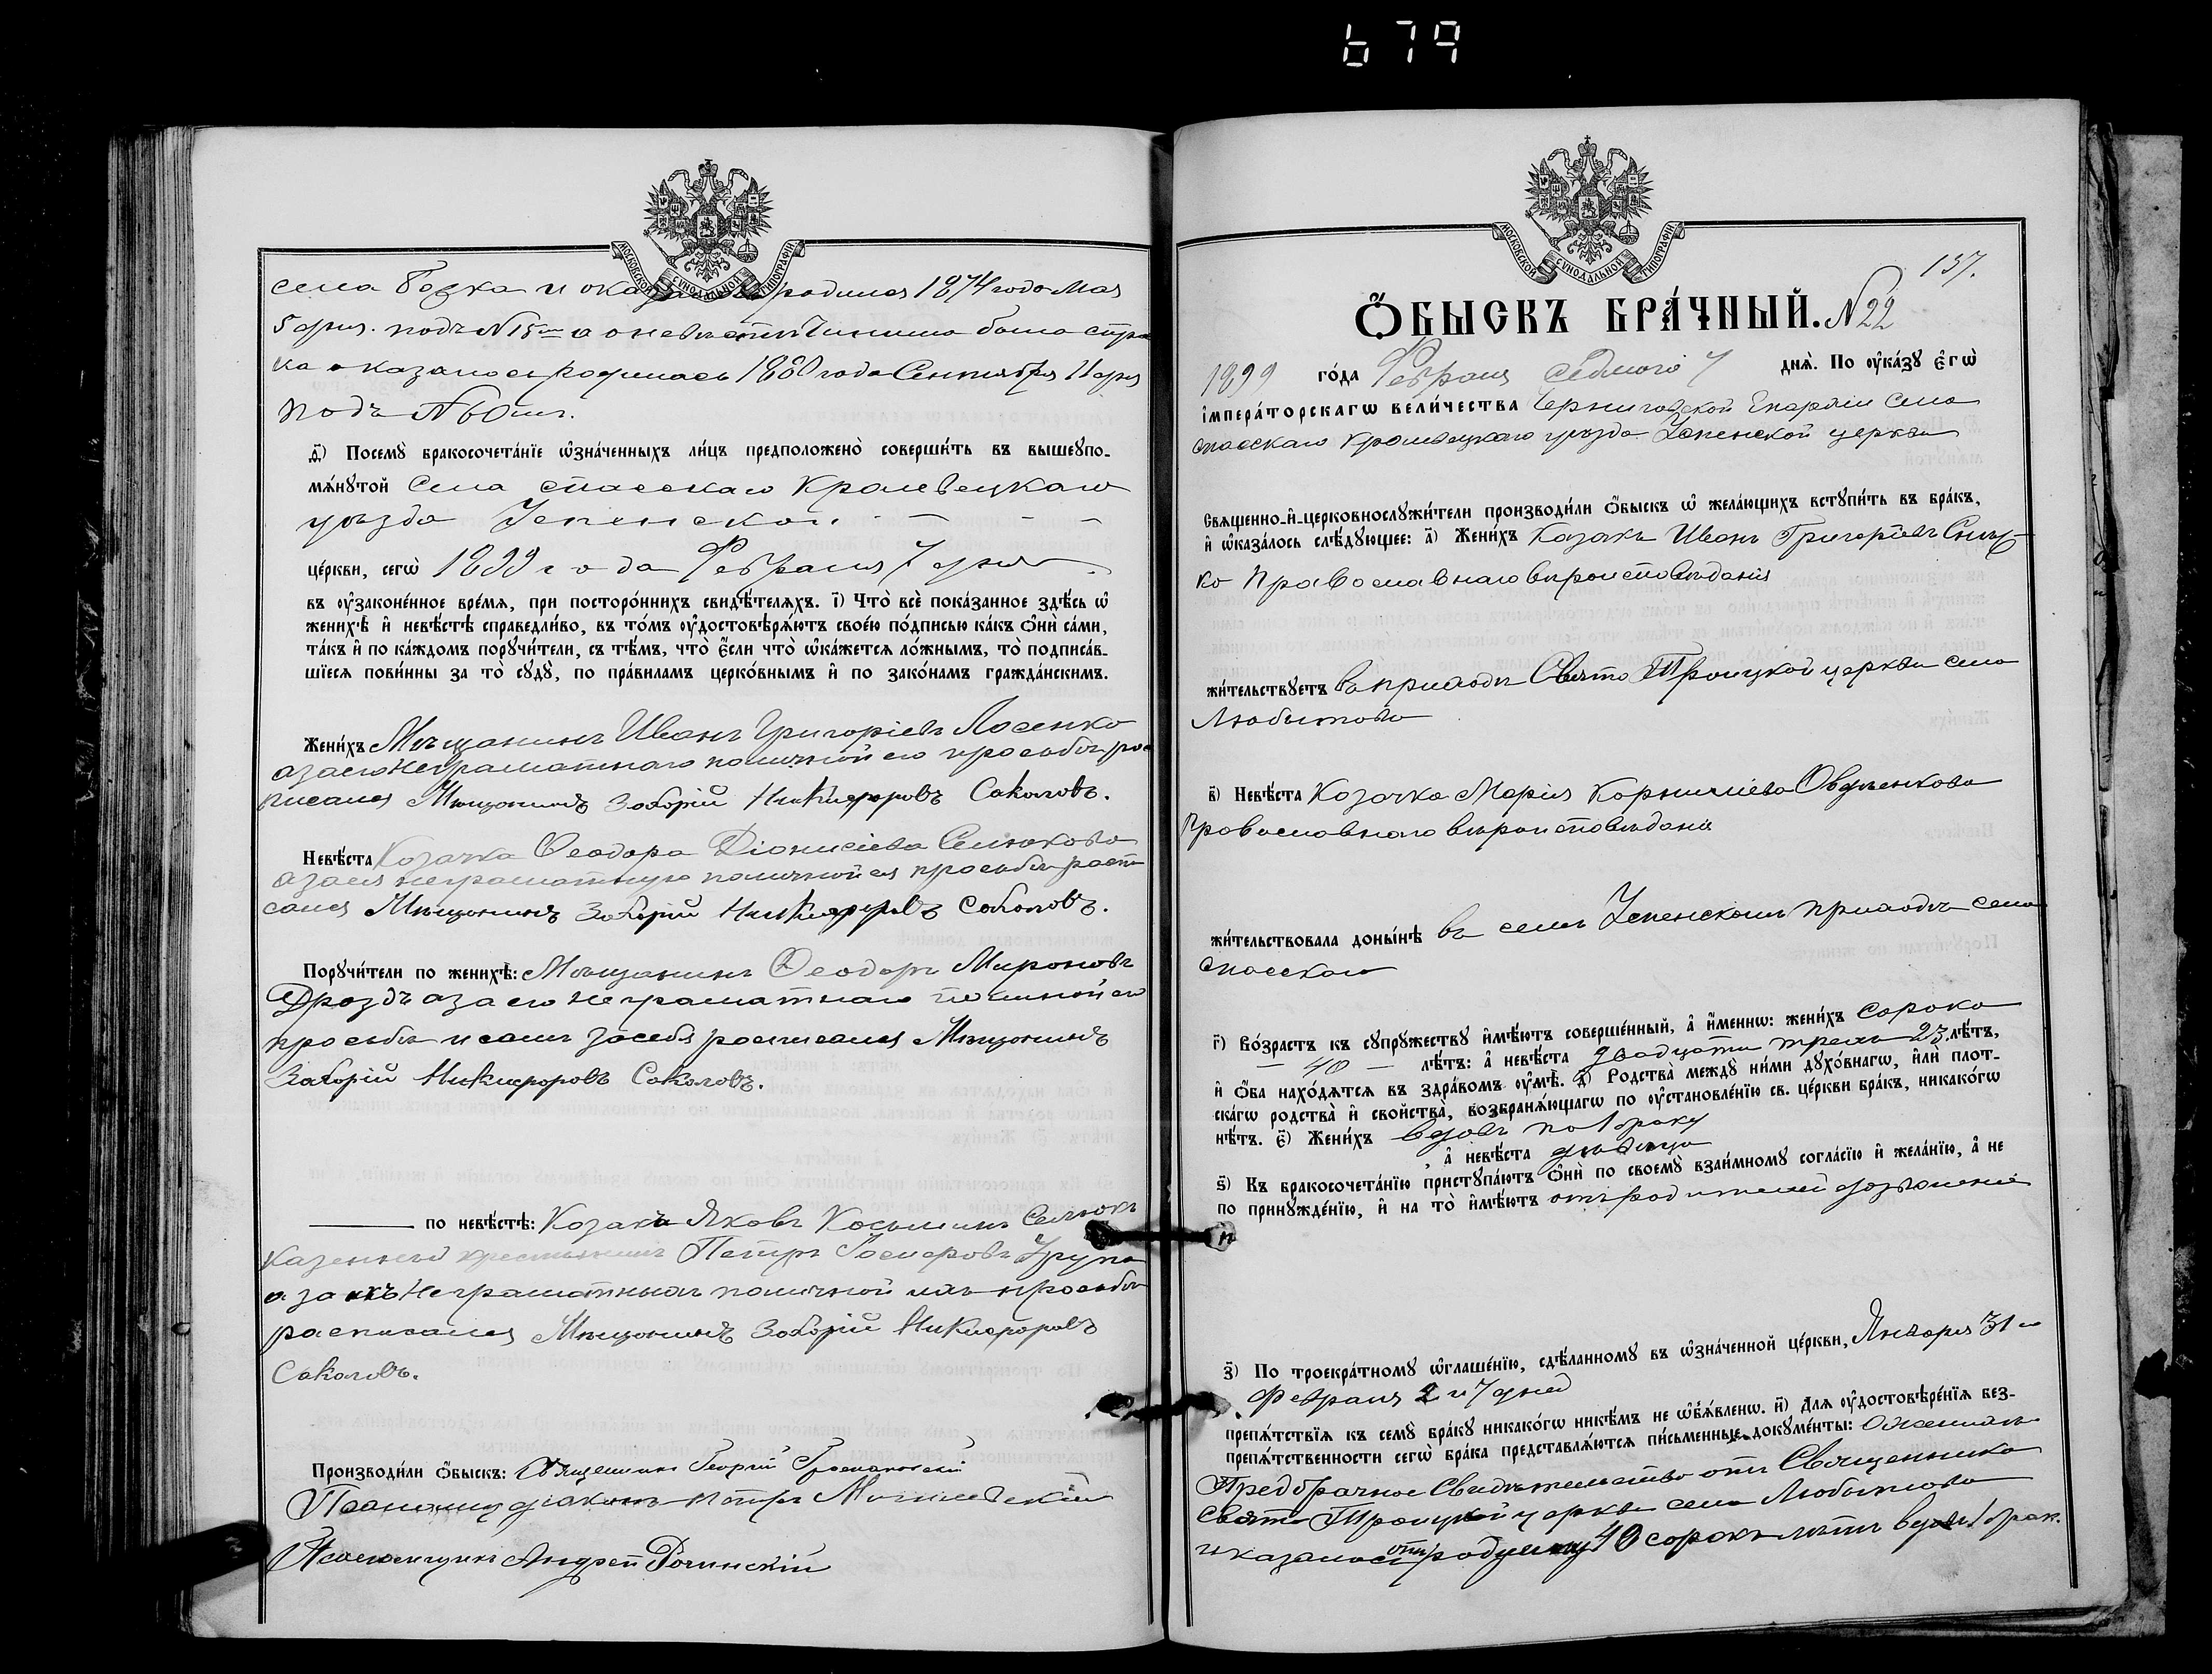 679
МОСКОВСКОЙ СѴНОДАЛЬНОЙ ТИПОГРАФІИ
села и родился 1874 года Мая
5 дня. подъ №15мъ а о невѣстѣ
ка оказалось родилась 1880 года Сентября 11 дня
подъ №60мъ.
д҃і) Посемꙋ̀ бракосочета́нїе ѡ҆зна́ченныхъ ли́цъ предположено̀ соверши́ть въ вышеꙋпо-
мѧ́нꙋтой Села спасскаго Кролевецкаго
уѣзда Успенской
це́ркви, сегѡ̀ 1899 года Февраля 7 дня
въ ᲂу҆зако́ненное вре́мѧ, при посторо́ннихъ свидѣ́телѧхъ. і҃) Что̀ всѐ пока́занное здѣ́сь ѡ҆
женихѣ̀ и҆ невѣ́стѣ справедли́во, въ то́мъ ᲂу҆достовѣрѧ́ютъ свое́ю по́дписью ка́къ ѻ҆нѝ са́ми,
та́къ и҆ по ка́ждомъ порꙋчи́тели, съ тѣ́мъ, что̀ є҆́сли что̀ ѡ҆ка́жетсѧ ло́жнымъ, то̀ подписа́в-
шїесѧ пови́нны за то̀ сꙋдꙋ̀, по пра́виламъ церко́внымъ и҆ по зако́намъ гражда́нскимъ.
Жени́хъ Мѣщанинъ Иванъ Григоріевъ Лосенко
а за его неграматнаго по личной его просьбѣ рос
писался Мѣщанинъ Захорій Никифоровъ Соколовъ.
Невѣ́ста Козачка Ѳеодора Діонисіева Селюкова
а за ея неграматную по личной ея просьбѣ роспи
сался Мѣщанинъ Захорій Никифоровъ Соколовъ.
Порꙋчи́тели по женихѣ̀: Мѣщанинъ Ѳеодоръ Мироновъ
Дроздъ а за его неграматнаго по личной его
просьбѣ и самъ за себя росписался Мѣщанинъ
Захорій Никифоровъ Соколовъ.
по невѣ́стѣ: Козакъ Яковъ Косьминъ Селюкъ
Казенный крестьянинъ Петръ
а за ихъ неграматныхъ по личной ихъ просьбѣ
росписался Мѣщанинъ Захорій Никифоровъ
Соколовъ.
Производи́ли ѻ҆́быскъ: Священникъ Георгій
Псаломщ діаконъ Петръ
Псаломщикъ Андрей
МОСКОВСКОЙ СѴНОДАЛЬНОЙ ТИПОГРАФІИ
137.
Ѻ҆́БЫСКЪ БРА́ЧНЫЙ. №22
1899 го́да Февраля Седмого 7 днѧ̀. По ᲂу҆ка́зꙋ є҆гѡ̀
і҆мпера́торскагѡ вели́чества Черниговской Епархіи Села
спасскаго Кролевецкаго уѣзда Успенской церкви
Свѧщенно-и҆-церковнослꙋжи́тели производи́ли ѻ҆́быскъ ѡ҆ жела́ющихъ встꙋпи́ть въ бра́къ,
и҆ ѡ҆каза́лось слѣ́дꙋющее: а҃) Жени́хъ Казакъ Иванъ Григоріевъ
ко Православнаго вѣроисповѣданія
жи́тельствꙋетъ въ приходѣ Свято Троицкой церкви села
Любитово
в҃) Невѣ́ста Козачка Марія Корниліева Овдѣенкова
Православнаго вѣроисповѣданія
жи́тельствовала доны́нѣ въ семъ Успенскомъ приходѣ села
спасскаго
г҃) Во́зрастъ къ сꙋпрꙋ́жествꙋ и҆мѣ́ютъ соверше́нный, а҆ и҆́меннѡ: жени́хъ сорока
40 лѣ́тъ: а҆ невѣ́ста двадцати трехъ 23 лѣ́тъ,
и҆ ѻ҆́ба нахо́дѧтсѧ въ здра́вомъ ᲂу҆мѣ̀. д҃) Родства̀ междꙋ̀ ни́ми дꙋхо́внагѡ, и҆лѝ плот-
ска́гѡ родства̀ и҆ сво́йства, возбранѧ́ющагѡ по ᲂу҆становле́нїю св. це́ркви бра́къ, никако́гѡ
нѣ́тъ. є҃) Жени́хъ вдовъ по 1 браку
, а҆ невѣ́ста дѣвица
ѕ҃) Къ бракосочета́нїю пристꙋпа́ютъ ѻ҆нѝ по своемꙋ̀ взаи́мномꙋ согла́сїю и҆ жела́нїю, а҆ не
по принꙋжде́нїю, и҆ на то̀ и҆мѣ́ютъ отъ родителей дозволеніе
з҃) По троекра́тномꙋ ѡ҆глаше́нїю, сдѣ́ланномꙋ въ ѡ҆зна́ченной це́ркви, Января 31 и
Февраля 2 и 7 дней
препѧ́тствїѧ къ семꙋ̀ бра́кꙋ никако́гѡ никѣ́мъ не ѡ҆б̾ѧ́вленѡ. и҃) Длѧ ᲂу҆достовѣре́нїѧ без-
препѧ́тственности сегѡ̀ бра́ка представлѧ́ютсѧ пи́сьменные докꙋме́нты: О женихѣ
Предбрачное Свидѣтельство отъ Священника
Свято Троицкой церкви села Любитово
и казалось отъ роду ему 40 сорокъ лѣтъ вдовъ 1 брак.